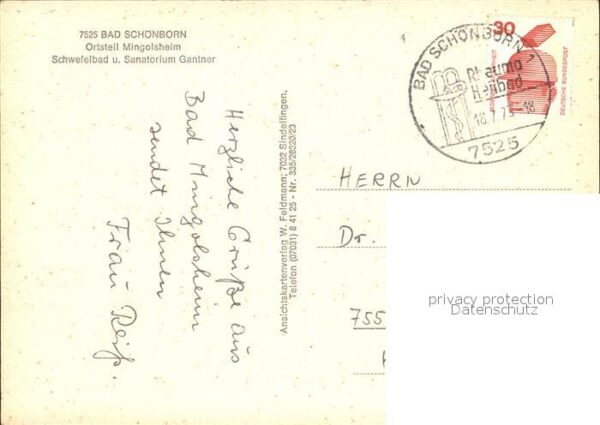 7525 BAD SCHÖNBORN
Ortsteil Mingolsheim
Schwefelbad u. Sanatorium Gantner
Herzliche Grüße aus
Bad Mingolsheim
sendet Ihnen
Frau Reiß.
Ansichtskartenverlag W. Feldmann, 7032 Sindelfingen,
Telefon (07031) 8 41 25 - Nr. 335/28220/23
BAD SCHÖNBORN 1
Rheuma
Heilbad
18.7.75-18
7525
30
DEUTSCHE BUNDESPOST
HERRN
Dr.
755
privacy protection
Datenschutz